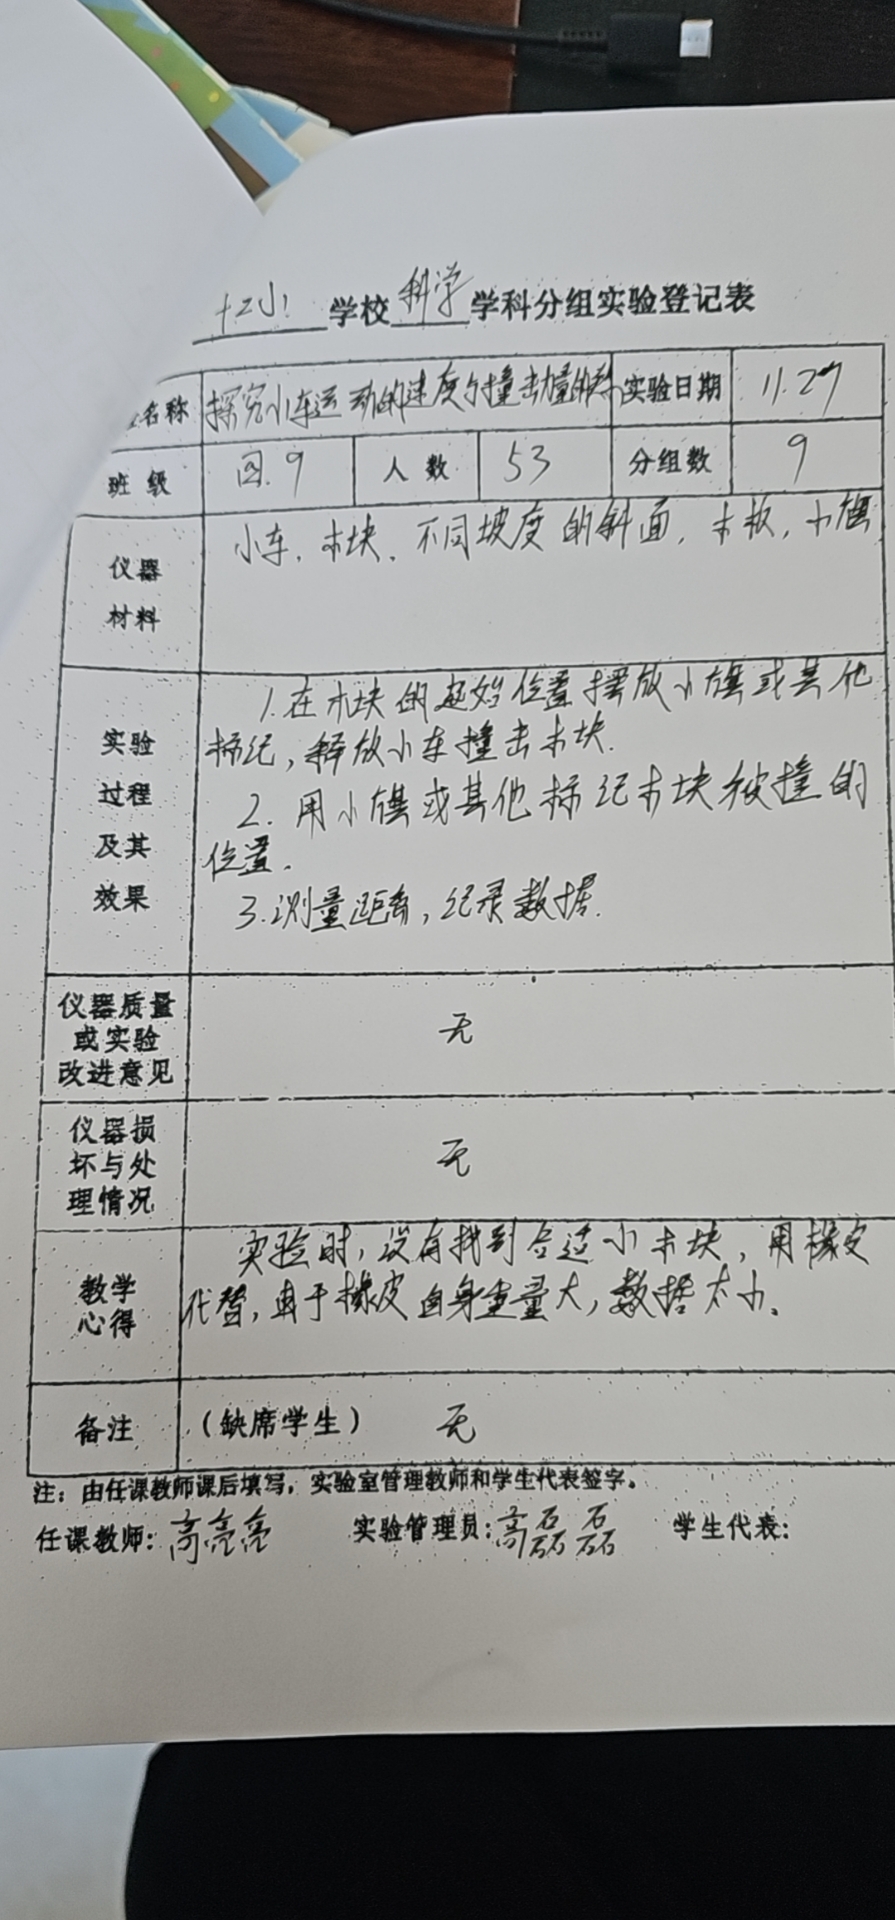 十二小 学校 科学 学科分组实验登记表
名称 探究小车运动的速度与撞击力量的 实验日期 11.27
班级 四.9 人数 53 分组数 9
仪器材料 小车、木块、不同坡度的斜面,木板,小旗
实验过程及其效果
1.在木块的起始位置摆放小旗或其他
标记,释放小车撞击木块.
2.用小旗或其他标记木块被撞的
位置.
3.测量距离,纪录数据.
仪器质量或实验改进意见 无
仪器损坏与处理情况 无
教学心得
实验时,没有找到合适小木块,用橡皮
代替,由于橡皮自身重量大,数据太小。
备注 (缺席学生) 无
注:由任课教师课后填写,实验室管理教师和学生代表签字。
任课教师:高亮亮 实验管理员:高磊磊 学生代表: